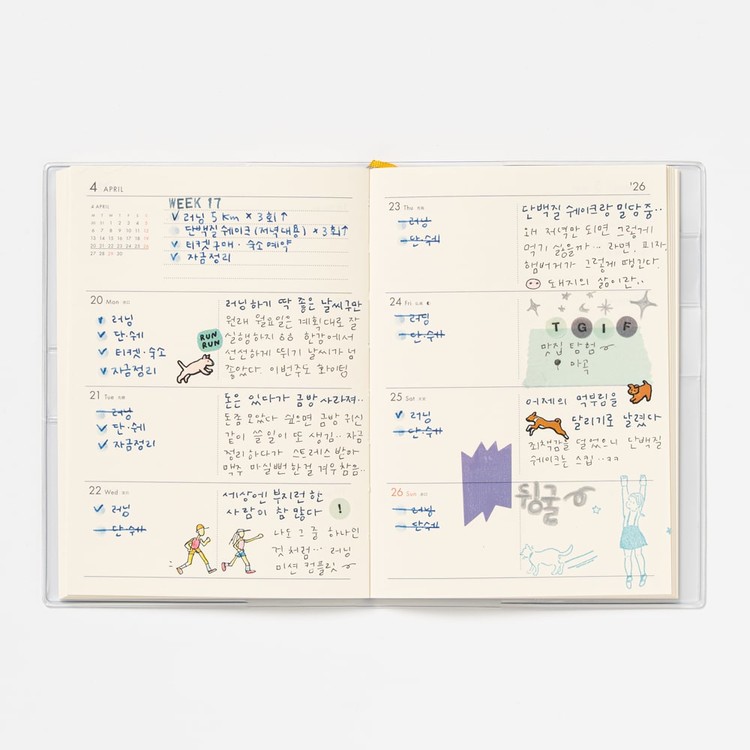 4 APRIL
4 APRIL
M T W T F S S
1 2 3 4 5
6 7 8 9 10 11 12
13 14 15 16 17 18 19
20 21 22 23 24 25 26
27 28 29 30
WEEK 17
러닝 5 km × 3회↑
단백질 쉐이크 (저녁대용) × 3회↑
티켓구매 · 숙소예약
자금정리
20 Mon
러닝
단·쉐
티켓·숙소
자금정리
러닝하기 딱 좋은 날씨구만
원래 월요일은 계획대로 잘
실행하지 ㅎㅎ 한강에서
선선하게 뛰기 날씨가 넘
좋았다. 이번주도 화이팅
RUN
RUN
21 Tue
러닝
단·쉐
자금정리
돈은 있다가 금방 사라져..
돈좀 모았다 싶으면 금방 귀신
같이 쓸 일이 또 생김.. 자금
정리하다가 스트레스 받아
맥주 마실뻔 한걸 겨우 참음..
22 Wed
러닝
단·쉐
세상엔 부지런한
사람이 참 많다
!
나도 그 중 하나인
것처럼… 러닝
미션 컴플릿
'26
23 Thu
러닝
단·쉐
단백질 쉐이크랑 밀당중..
왜 저녁만 되면 그렇게
먹기 싫을까… 라면, 피자,
햄버거가 그렇게 땡긴다.
돼지의 삶이란..
24 Fri
러닝
단·쉐
TGIF
맛집 탐험
25 Sat
러닝
단·쉐
어제의 먹부림을
달리기로 날렸다
죄책감을 덜었으니 단백질
쉐이크는 스킵..ㅋㅋ
26 Sun
러닝
단·쉐
뒹굴